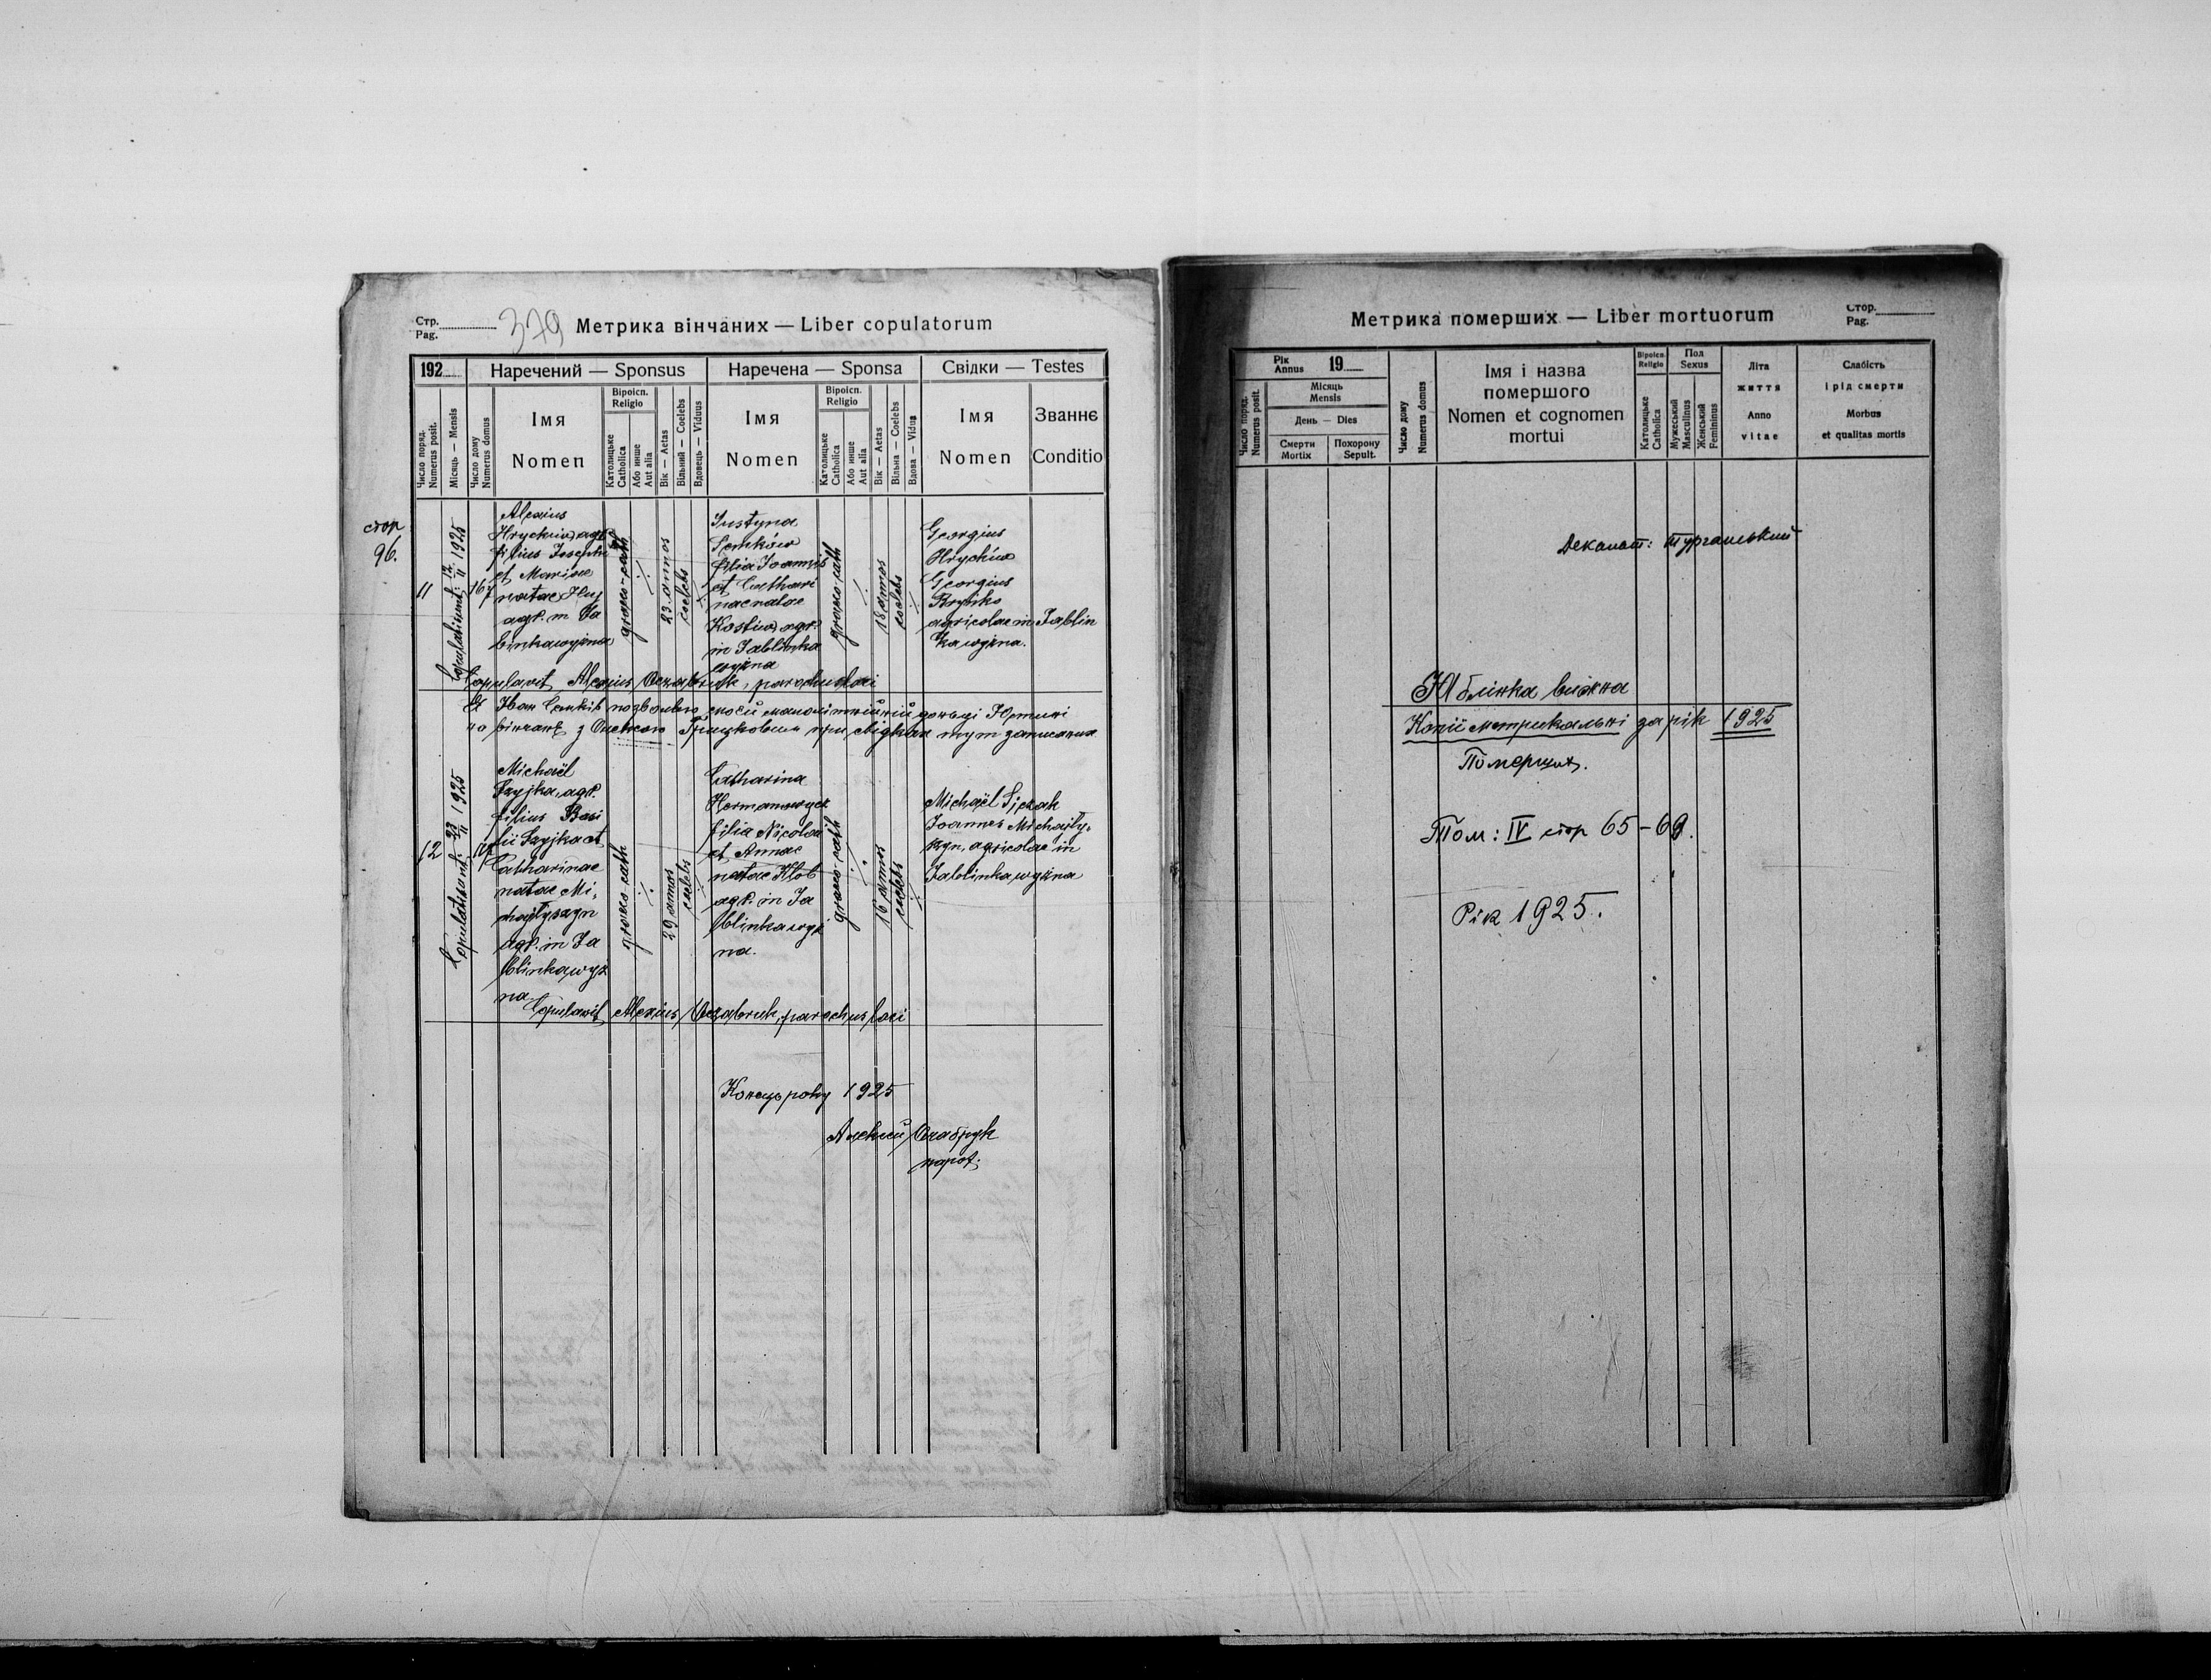 Стр.
Pag.
379
Метрика вінчаних — Liber copulatorum
192
Наречений — Sponsus
Наречена — Sponsa
Свідки — Testes
Число поряд.
Numerus posit.
Місяць — Mensis
Число дому
Numerus domus
Імя
Nomen
Віроісп.
Religio
Католицьке
Catholica
Або инше
Aut alia
Вік — Aetas
Вільний — Coelebs
Вдовець — Viduus
Імя
Nomen
Віроісп.
Religio
Католицьке
Catholica
Або инше
Aut alia
Вік — Aetas
Вільна — Coelebs
Вдова — Vidua
Імя
Nomen
Званнє
Conditio
стор
96.
11
Copulati sunt: 12/II 1925
167
Alexius
Hryckiw agr.
filius Josephi
et Mariae
natae
agr. in Ja
blinkawyżna
graeco-cath
23 annos
coelebs
Justyna
Semków
filia Joannis
et Cathari
nae natae
Kostiw agr.
in Jablinka
wyżna
graeco-cath
18 annos
coelebs
Georgius
Hryckiw
Georgius
Rybko
agricolae in Jablin
ka wyżna.
Copulavit Alexius Oczabruk, parochus loci
Іван Семків позволяю моєй малолітнійній доньці Юстині
на вінчанє з Олексою Грицковим при свідках тут записаних
12
Copulati sunt: 23/II 1925
Michaël
Szyjka, agr.
filius Basi
lii Szyjka et
Catharinae
natae Mi-
chajłyszyn
agr. in Ja
blinkawyż
na
graeco-cath
29 annos
coelebs
Catharina
filia Nicolai
et Annae
natae Klob
agr. in Ja
blinkawyż
na.
graeco-cath
16 annos
coelebs
Michaël Sjczak
Joannes Michajły-
szyn, agricolae in
Jablinkawyżna
Copulavit Alexius Oczabruk, parochus loci
Конець року 1925
Алексий Очабрук
парох.
Метрика померших — Liber mortuorum
Стор.
Pag.
Рік
Annus
19
Число поряд.
Numerus posit.
Місяць
Mensis
День — Dies
Смерти
Mortix
Похорону
Sepult.
Число дому
Numerus domus
Імя і назва
помершого
Nomen et cognomen
mortui
Віроісп.
Religio
Католицьке
Catholica
Пол
Sexus
Мужеський
Masculinus
Женський
Femininus
Літа
життя
Anno
vitae
Слабість
і рід смерти
Morbus
et qualitas mortis
Деканат: Турчанський
Яблінка вижна
Копії метрикальні за рік 1925
Померших.
Том: IV стор 65-69.
Рік 1925.